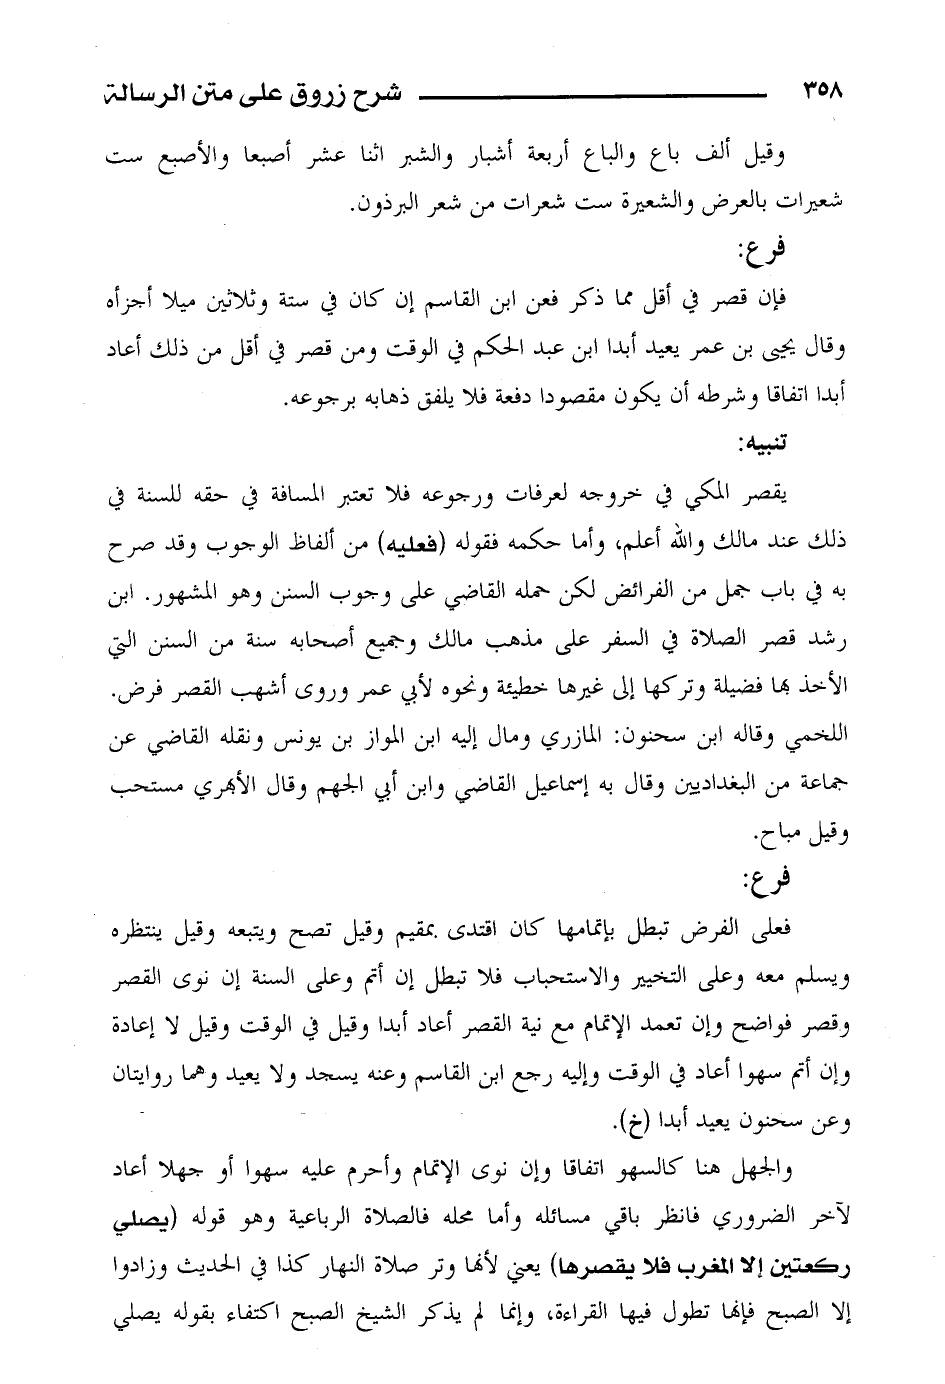 ٣٥٨ شرح زروق على متن الرسالة
وقيل ألف باع والباع أربعة أشبار والشبر اثنا عشر أصبعا والأصبع ست
شعيرات بالعرض والشعيرة ست شعرات من شعر البرذون.
فرع:
فإن قصر في أقل مما ذكر فعن ابن القاسم إن كان في ستة وثلاثين ميلا أجزأه
وقال يحيى بن عمر يعيد أبدا ابن عبد الحكم في الوقت ومن قصر في أقل من ذلك أعاد
أبدا اتفاقا وشرطه أن يكون مقصودا دفعة فلا يلفق ذهابه برجوعه.
تنبيه:
يقصر المكي في خروجه لعرفات ورجوعه فلا تعتبر المسافة في حقه للسنة في
ذلك عند مالك والله أعلم، وأما حكمه فقوله (فعليه) من ألفاظ الوجوب وقد صرح
به في باب جمل من الفرائض لكن حمله القاضي على وجوب السنن وهو المشهور. ابن
رشد قصر الصلاة في السفر على مذهب مالك وجميع أصحابه سنة من السنن التي
الأخذ بها فضيلة وتركها إلى غيرها خطيئة ونحوه لأبي عمر وروى أشهب القصر فرض.
اللخمي وقاله ابن سحنون: المازري ومال إليه ابن المواز بن يونس ونقله القاضي عن
جماعة من البغداديين وقال به إسماعيل القاضي وابن أبي الجهم وقال الأبهري مستحب
وقيل مباح.
فرع:
فعلى الفرض تبطل بإتمامها كان اقتدى بمقيم وقيل تصح ويتبعه وقيل ينتظره
ويسلم معه وعلى التخيير والاستحباب فلا تبطل إن أتم وعلى السنة إن نوى القصر
وقصر فواضح وإن تعمد الإتمام مع نية القصر أعاد أبدا وقيل في الوقت وقيل لا إعادة
وإن أتم سهوا أعاد في الوقت وإليه رجع ابن القاسم وعنه يسجد ولا يعيد وهما روايتان
وعن سحنون يعيد أبدا (خ).
والجهل هنا كالسهو اتفاقا وإن نوى الإتمام وأحرم عليه سهوا أو جهلا أعاد
لآخر الضروري فانظر باقي مسائله وأما محله فالصلاة الرباعية وهو قوله (يصلي
ركعتين إلا المغرب فلا يقصرها) يعني لأنها وتر صلاة النهار كذا في الحديث وزادوا
إلا الصبح فإنها تطول فيها القراءة، وإنما لم يذكر الشيخ الصبح اكتفاء بقوله يصلي